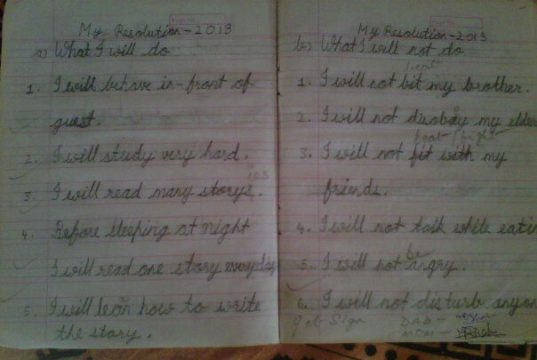 My Resolution-2013
a) What I will do
1. I will behave in-front of
guest.
2. I will study very hard.
3. I will read many storys.
ies
4. Before sleeping at night
I will read one story everyday
5. I will lean how to write
the story.
My Resolution-2013
b) What I will not do
beat
1. I will not bit my brother.
2. I will not disobay my elder
beat / fight
3. I will not fit with my
friends.
4. I will not talk while eatin
be
5. I will not angry.
6. I will not disturb anyon
Sign DAD -
MOM -